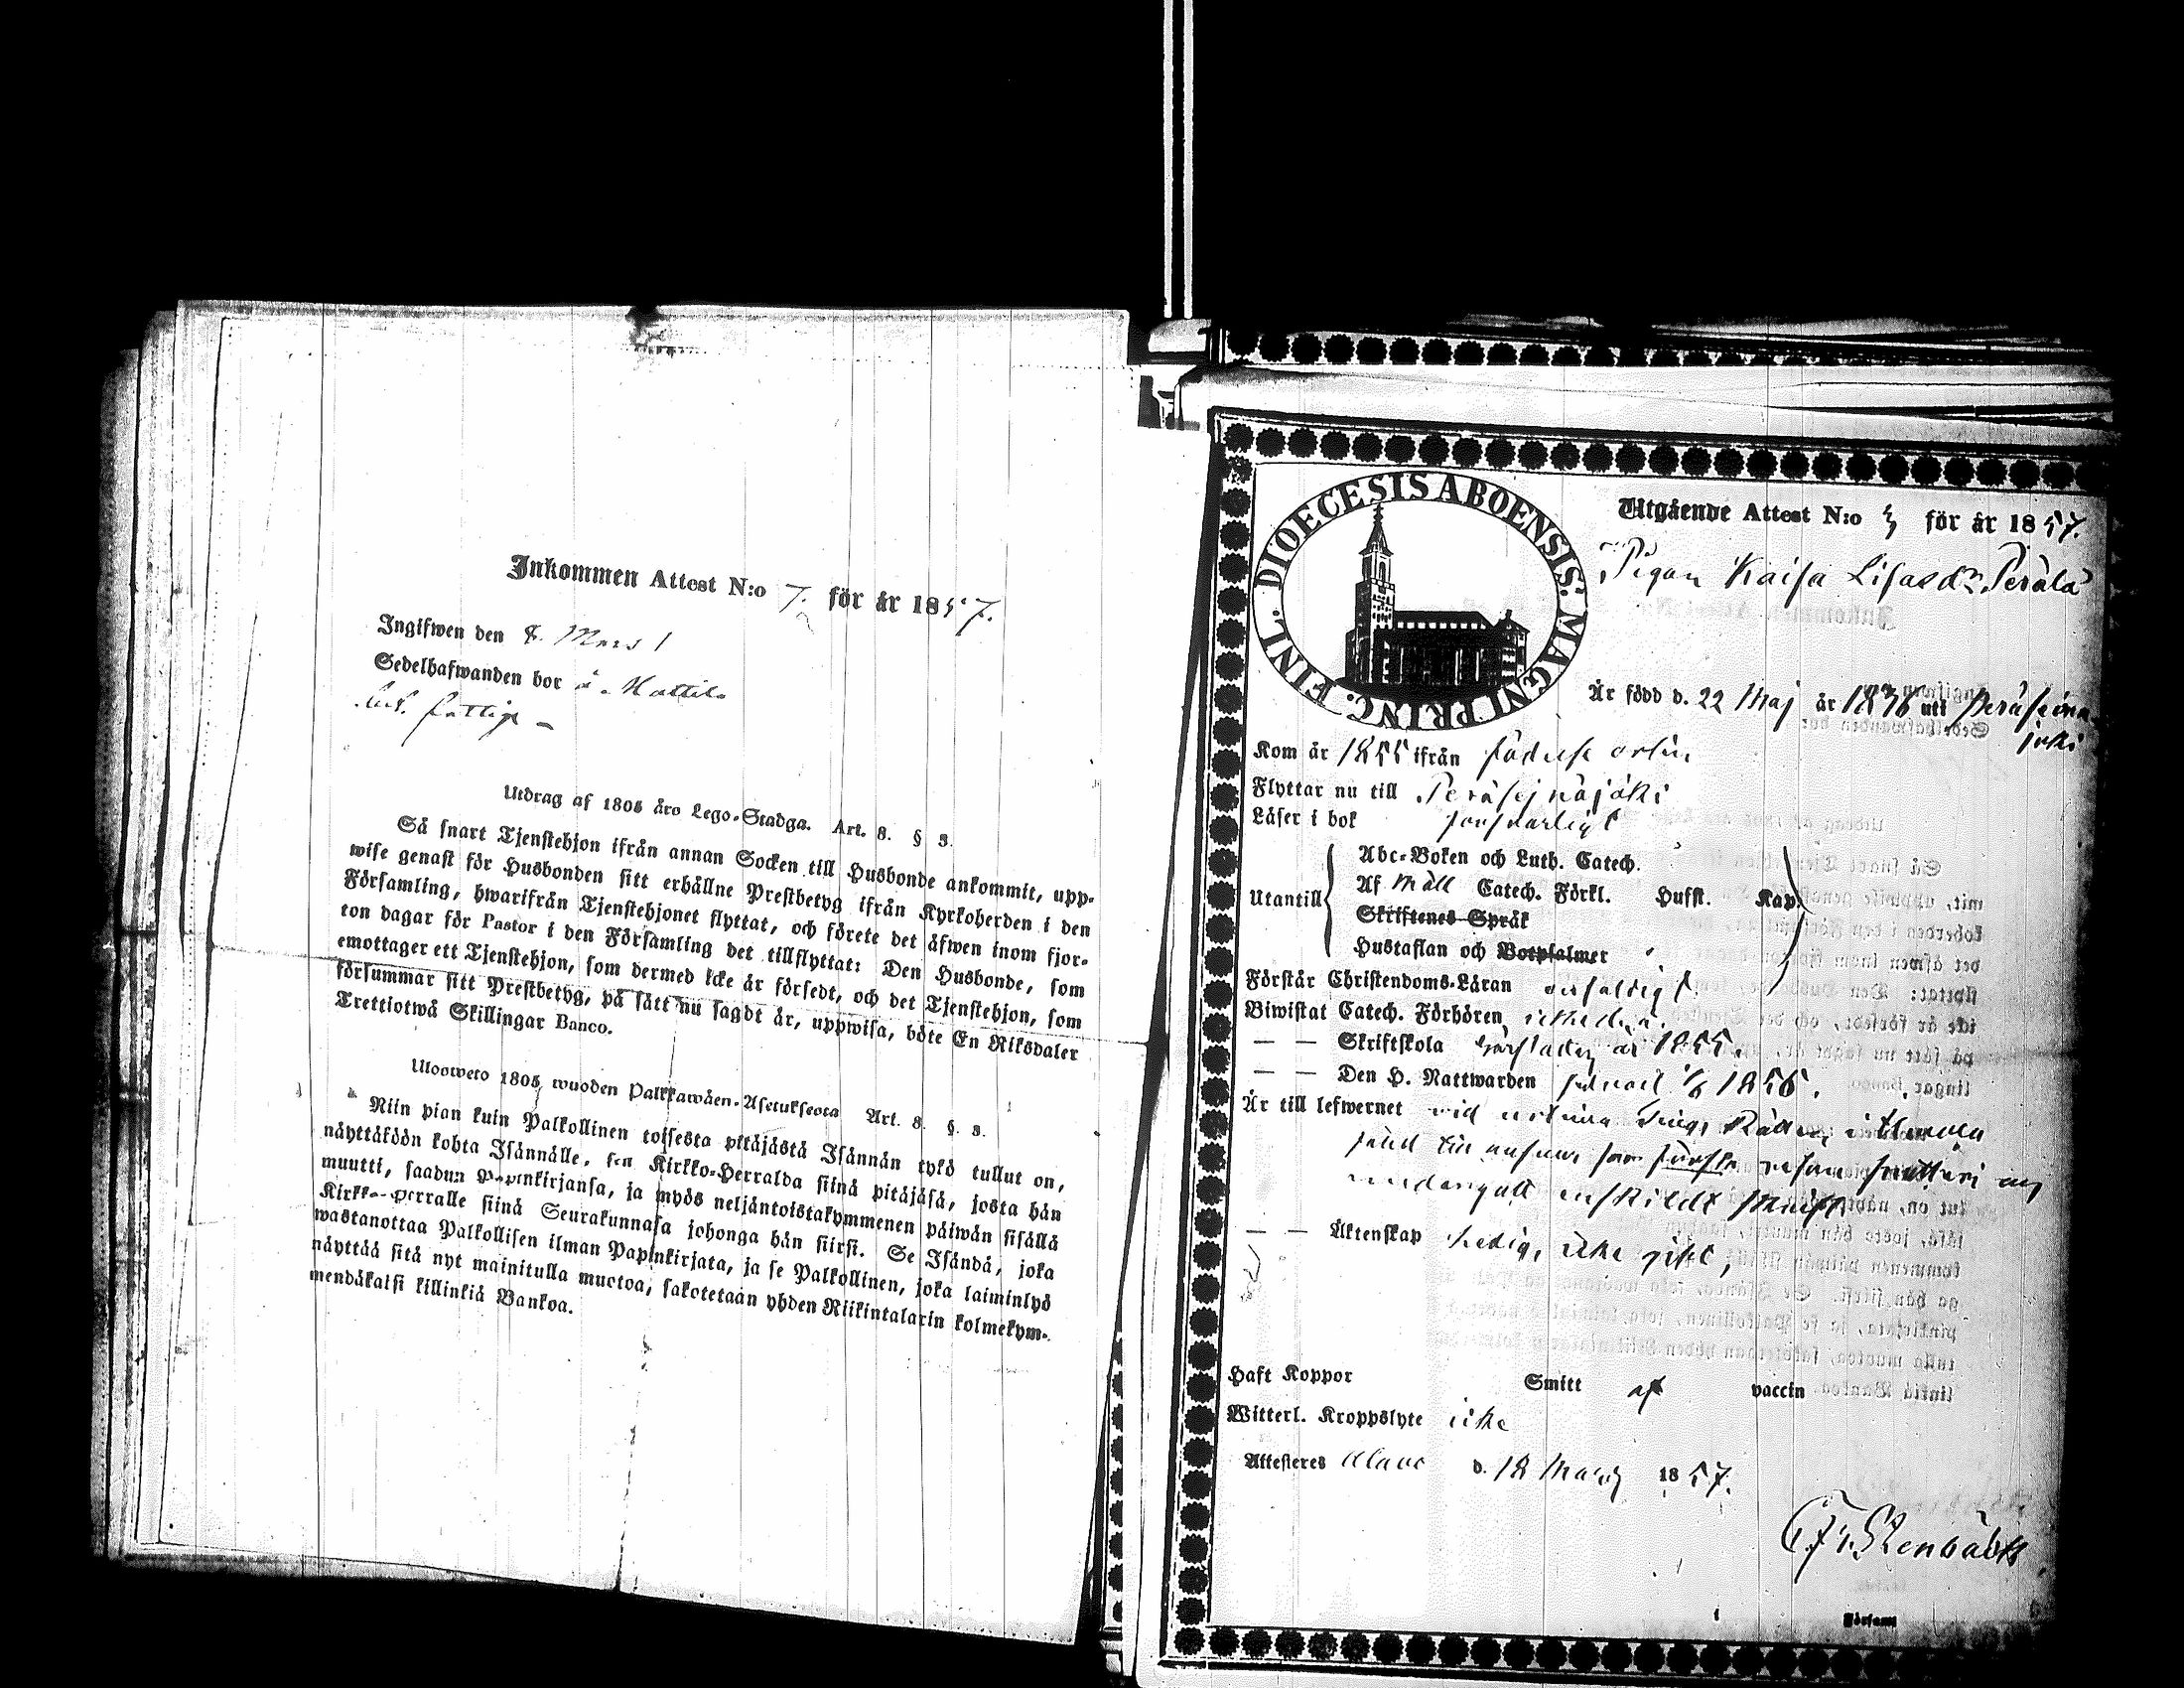 Inkommen Attest N:o 7. för år 1857.
Ingifwen den 8. Mars
Sedelhafwanden bor å Mattila
fattige
Utdrag af 1805 års Lego-Stadga. Art. 8. § 3.
Så snart Tjenstehjon ifrån annan Socken till Husbonde ankommit, upp-
wise genast för Husbonden sitt erhållne Prestbetyg ifrån Kyrkoherden i den
Församling, hwarifrån Tjenstehjonet flyttat, och förete det äfwen inom fjor-
ton dagar för Pastor i den Församling det tillflyttat: Den Husbonde, som
emottager ett Tjenstehjon, som dermed icke är försedt, och det Tjenstehjon, som
försummar sitt Prestbetyg, på sätt nu sagdt är, uppwisa, böte En Riksdaler
Trettiotwå Skillingar Banco.
Ulosweto 1805 wuoden Palkkawäen-Asetuksesta Art. 8. §. 3.
Niin pian kuin Palkollinen toisesta pitäjästä Isännän tykö tullut on,
näyttäköön kohta Isännälle, sen Kirkko-Herralda siinä pitäjäsä, josta hän
muutti, saadun Papinkirjansa, ja myös neljäntoistakymmenen päiwän sisällä
Kirkko-Herralle siinä Seurakunnasa johonga hän siirsi. Se Isändä, joka
wastanottaa Palkollisen ilman Papinkirjata, ja se Palkollinen, joka laiminlyö
näyttää sitä nyt mainitulla muotoa, sakotetaan yhden Riikintalarin kolmekym-
mendäkaksi killinkiä Bankoa.
DIOECESIS ABOENSIS. MAGNI PRINC. FINL.
Utgående Attest N:o 3 för år 1857.
Pigan Kaisa Lisasdr Perälä
Är född d. 22 Maj år 1836 uti Peräseina
joki
Kom år 1855 ifrån födelse orten
Flyttar nu till Peräsejnäjoki
Läser i bok försvarligt
Utantill
Abc-Boken och Luth. Catech.
Af Mall Catech. Förkl. Hufst. Kap.
Skriftenes Språk
Hustaflan och Botpsalmer
Förstår Christendoms-Läran enfaldigt
Biwistat Catech. Förhören
— — Skriftskola år 1855.
— — Den H. Nattwarden 1856.
Är till lefwernet vid urtima Tings Rätten i Alavo
undergått enskildt skrift
— — Äktenskap Ledig, icke gift,
Haft Koppor Smitt af vaccin
Witterl. Kroppslyte icke
Attesteres Alavo d. 18 Mars 1857.
Stenbäck
Församl